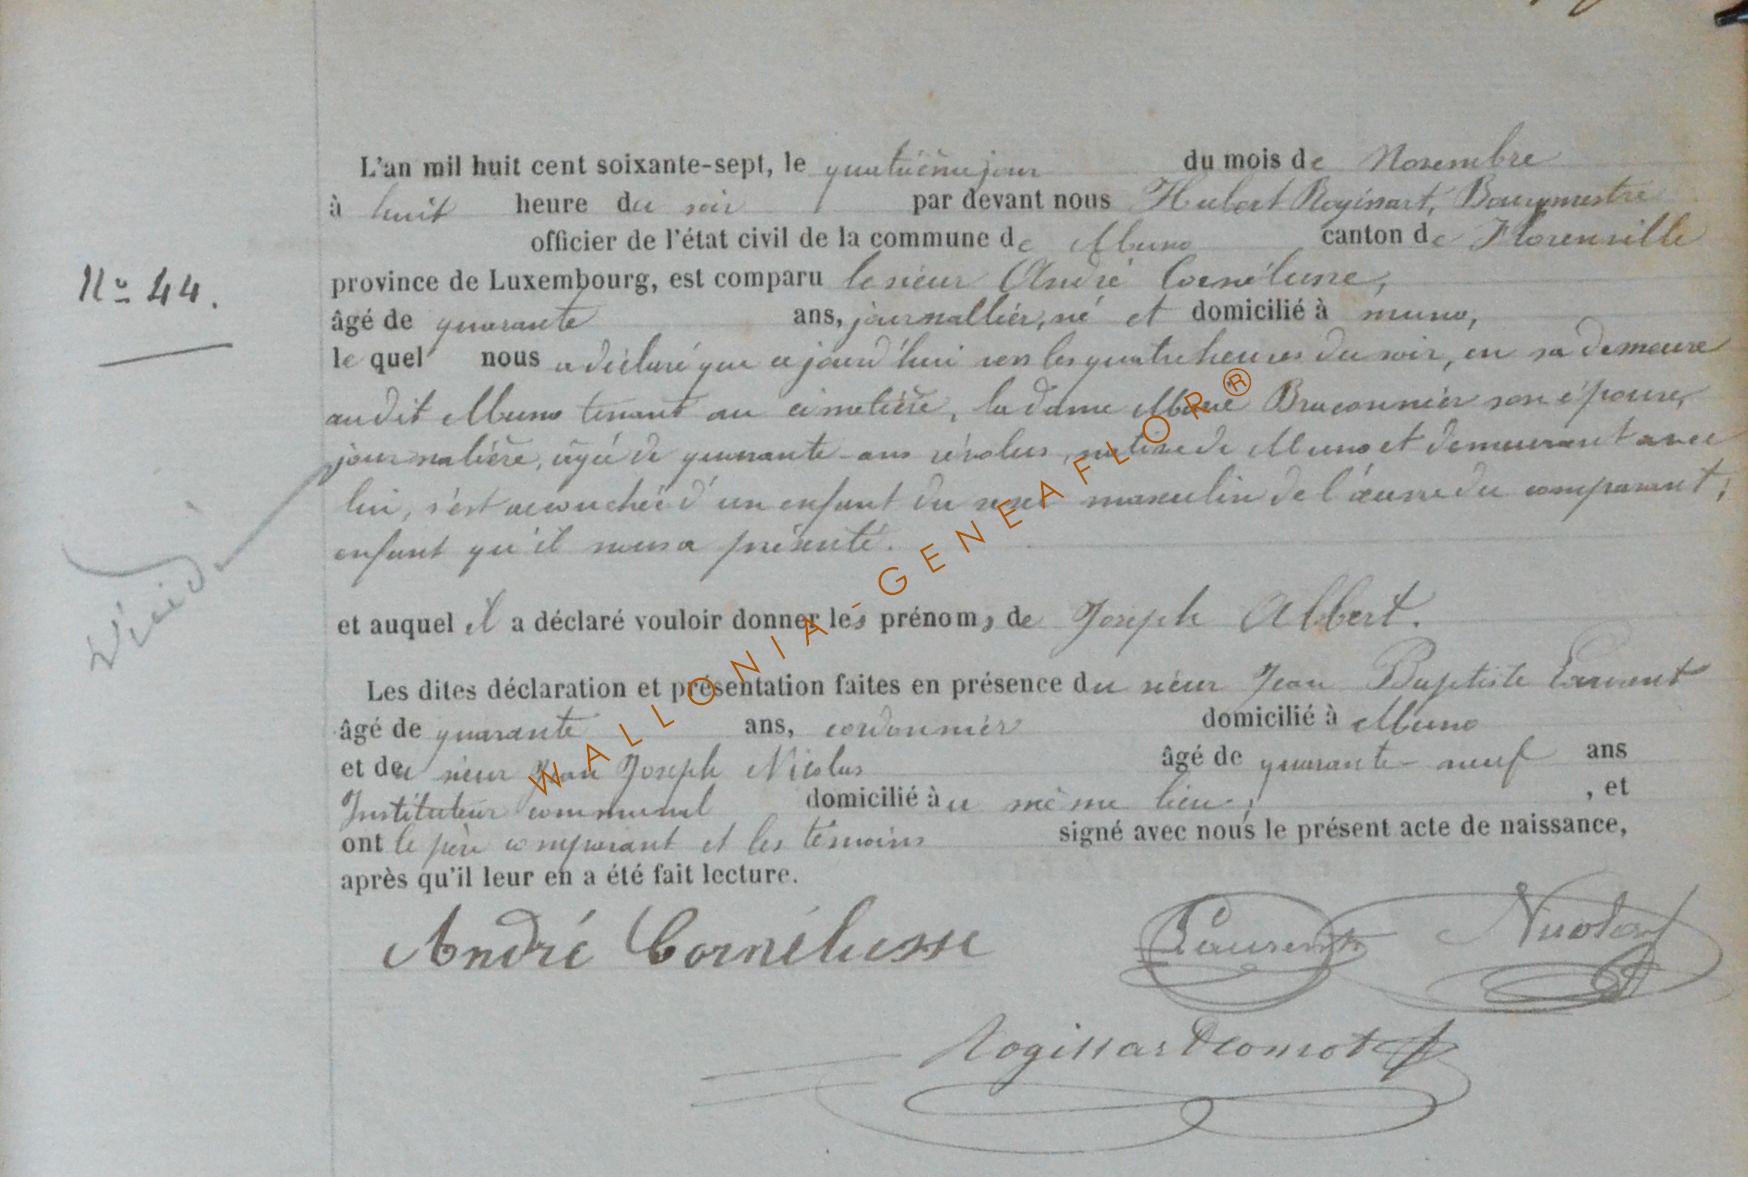 L'an mil huit cent soixante-sept, le quatrième jour du mois de Novembre
à huit heure du soir par devant nous Hubert Rogissart, Bourgmestre
officier de l'état civil de la commune de Muno canton de Florenville
N° 44.
province de Luxembourg, est comparu le sieur André Cornélusse,
âgé de quarante ans, journallier, né et domicilié à muno,
le quel nous a déclaré que ce jourd'hui vers les quatre heures du soir, en sa demeure
audit Muno tenant au cimetière, la dame Marie Braconnier son épouse,
journalière, âgée de quarante ans révolus, native de Muno et demeurant avec
lui, s'est accouchée d'un enfant du sexe masculin de l'œuvre du comparant,
enfant qu'il nous a présenté.
et auquel il a déclaré vouloir donner les prénoms de Joseph Albert.
Les dites déclaration et présentation faites en présence du sieur Jean Baptiste Laurent
âgé de quarante ans, cordonnier domicilié à Muno
et de sieur Jean Joseph Nicolas âgé de quarante-neuf ans
Instituteur communal domicilié à u même lieu, , et
ont le père comparant et les témoins signé avec nous le présent acte de naissance,
après qu'il leur en a été fait lecture.
André Cornélusse Laurent Nicolas
WALLONIA-GENEAFLOR®